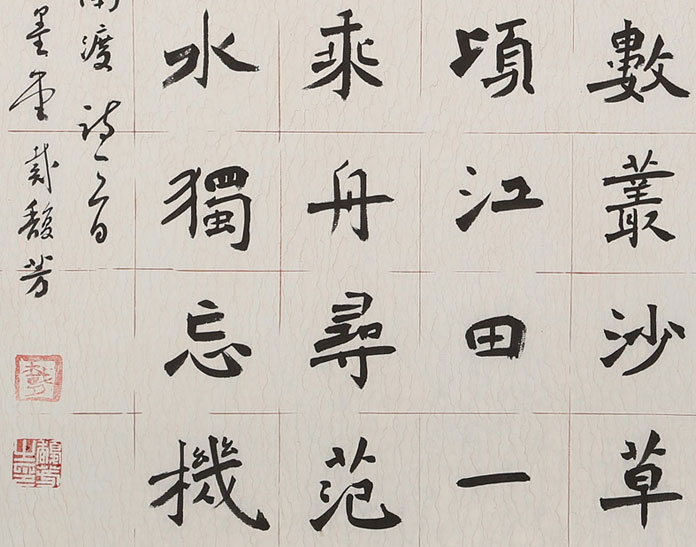 數叢沙草
頃江田一
乘舟尋范
水獨忘機
南渡詩一首
墨堂戴馥芳